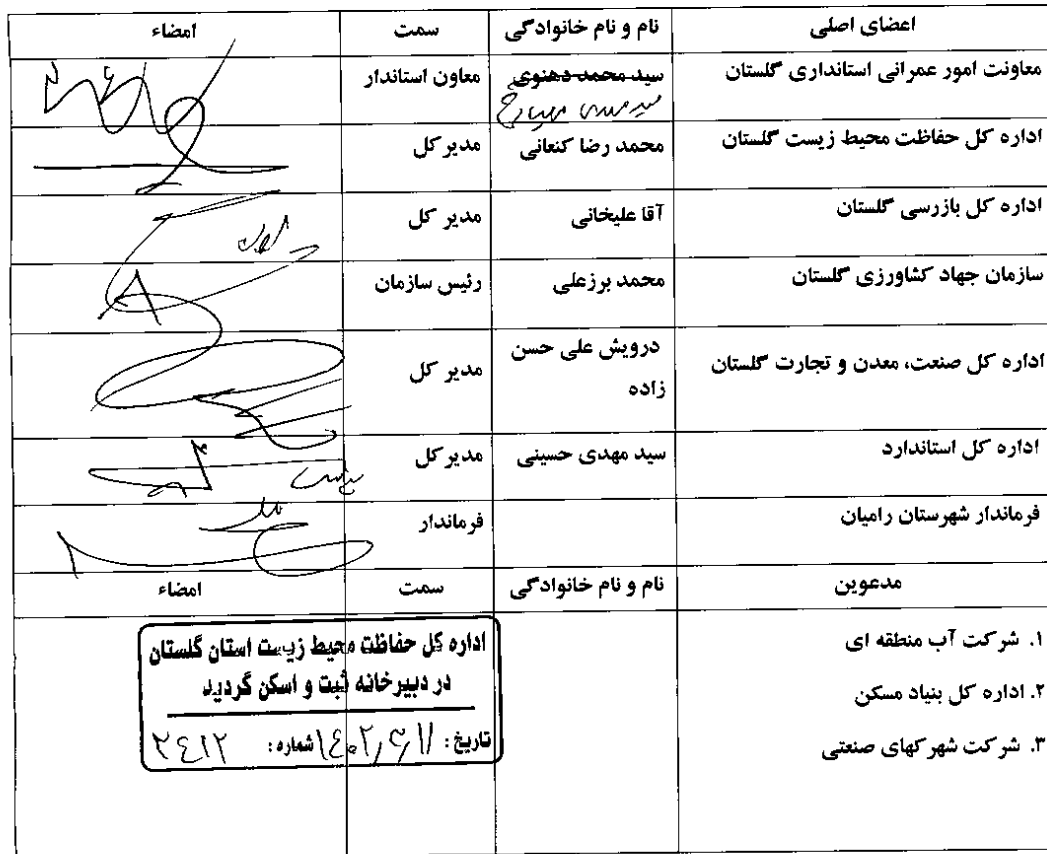 اعضای اصلی نام و نام خانوادگی سمت امضاء
معاونت امور عمرانی استانداری گلستان سید محمد دهنوی معاون استاندار
اداره کل حفاظت محیط زیست گلستان محمد رضا کنعانی مدیر کل
اداره کل بازرسی گلستان آقا علیخانی مدیر کل
سازمان جهاد کشاورزی گلستان محمد برزعلی رئیس سازمان
اداره کل صنعت، معدن و تجارت گلستان درویش علی حسن زاده مدیر کل
اداره کل استاندارد سید مهدی حسینی مدیر کل
فرماندار شهرستان رامیان فرماندار
مدعوین نام و نام خانوادگی سمت امضاء
۱. شرکت آب منطقه ای
۲. اداره کل بنیاد مسکن
۳. شرکت شهرکهای صنعتی
اداره کل حفاظت محیط زیست استان گلستان
در دبیرخانه ثبت و اسکن گردید
تاریخ: شماره: ۲۴۱۲